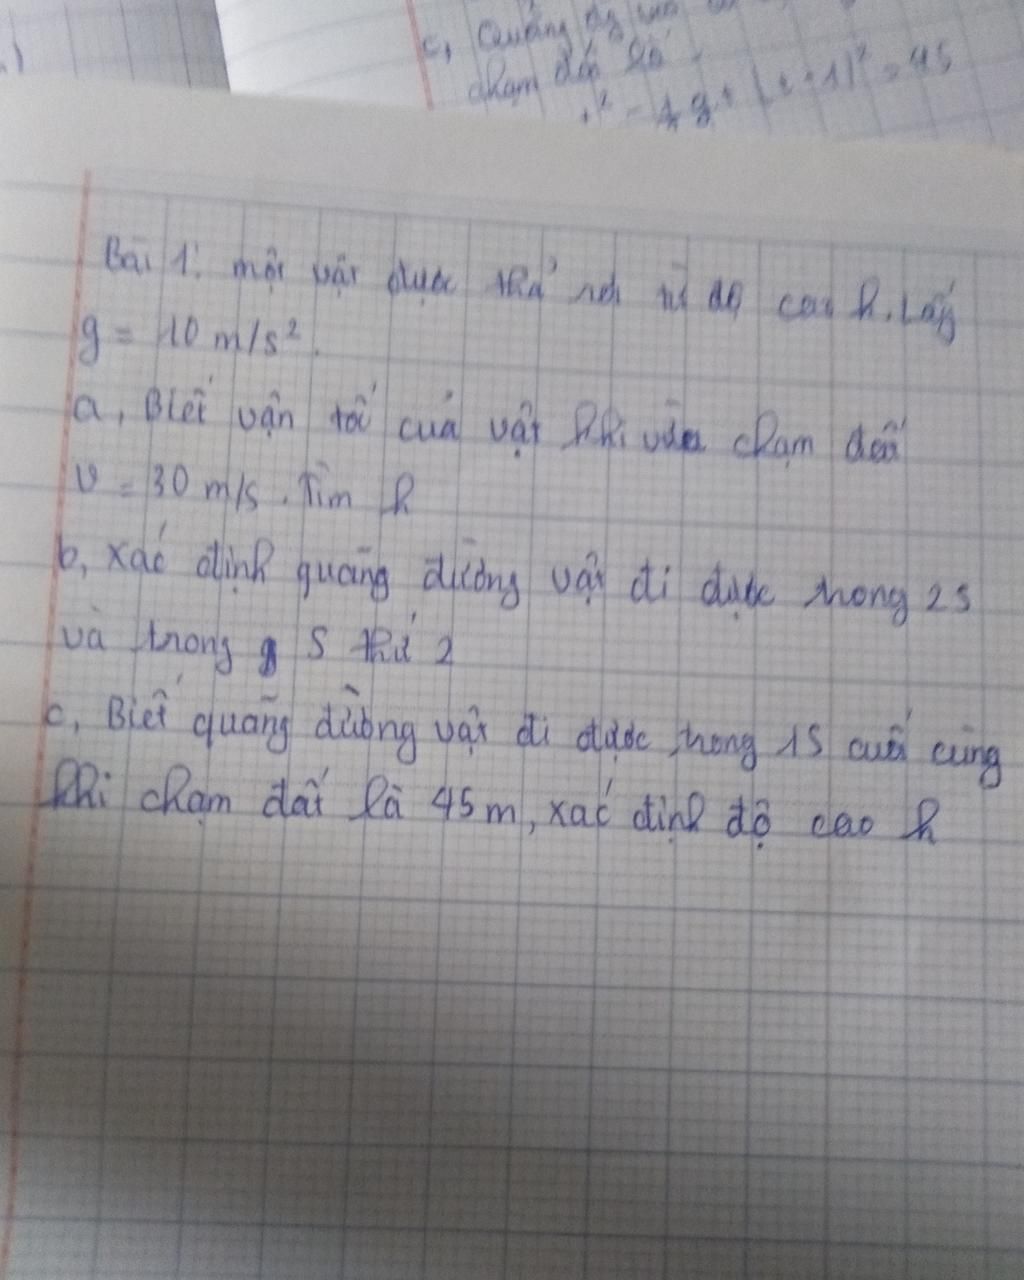 c, Quãng
chạm đất là
= 45
Bài 1: một vật được thả rơi từ độ cao h. Lấy
g = 10 m/s².
a, Biết vận tốc của vật khi vừa chạm đất
v = 30 m/s. Tìm h
b, xác định quãng đường vật đi được trong 2s
và trong s thứ 2
c, Biết quãng đường vật đi được trong 1s cuối cùng
khi chạm đất là 45m, xác định độ cao h